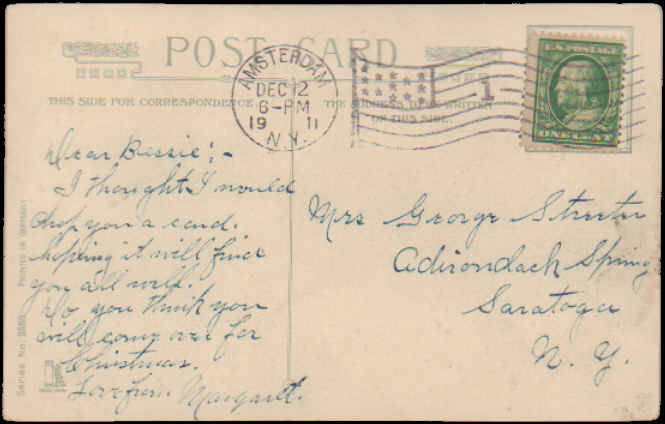 POST CARD
THIS SIDE FOR CORRESPONDENCE
THE ADDRESS TO BE WRITTEN
ON THIS SIDE.
AMSTERDAM
DEC 12
6-PM
19 11
N.Y.
1
U.S. POSTAGE
ONE CENT
Dear Bessie;-
I thought I would
drop you a card.
hoping it will find
you all well.
Do you think you
will come over for
Christmas.
Love from Margaret.
Mrs George Streeter
Adirondack Spring
Saratoga
N. Y.
Series No.
PRINTED IN GERMANY